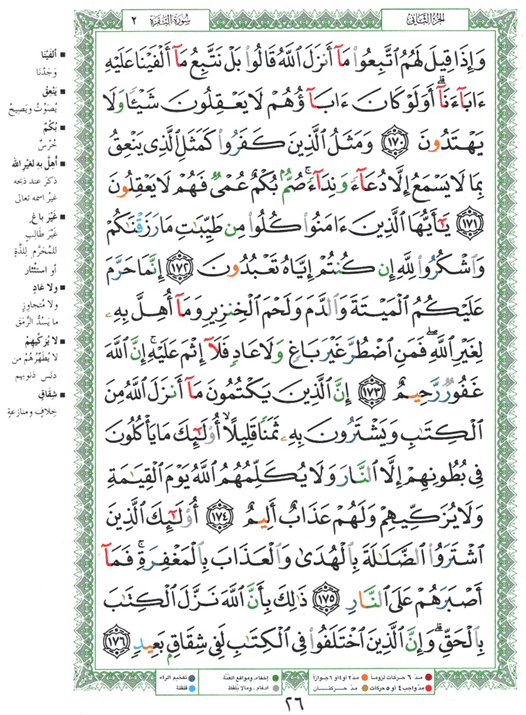 الجزء الثاني
سورة البقرة ٢
وَإِذَا قِيلَ لَهُمُ ٱتَّبِعُوا۟ مَآ أَنزَلَ ٱللَّهُ قَالُوا۟ بَلْ نَتَّبِعُ مَآ أَلْفَيْنَا عَلَيْهِ
ءَابَآءَنَآ ۗ أَوَلَوْ كَانَ ءَابَآؤُهُمْ لَا يَعْقِلُونَ شَيْـًٔا وَلَا
يَهْتَدُونَ ١٧٠ وَمَثَلُ ٱلَّذِينَ كَفَرُوا۟ كَمَثَلِ ٱلَّذِى يَنْعِقُ
بِمَا لَا يَسْمَعُ إِلَّا دُعَآءً وَنِدَآءً ۚ صُمٌّۢ بُكْمٌ عُمْىٌ فَهُمْ لَا يَعْقِلُونَ
١٧١ يَـٰٓأَيُّهَا ٱلَّذِينَ ءَامَنُوا۟ كُلُوا۟ مِن طَيِّبَـٰتِ مَا رَزَقْنَـٰكُمْ
وَٱشْكُرُوا۟ لِلَّهِ إِن كُنتُمْ إِيَّاهُ تَعْبُدُونَ ١٧٢ إِنَّمَا حَرَّمَ
عَلَيْكُمُ ٱلْمَيْتَةَ وَٱلدَّمَ وَلَحْمَ ٱلْخِنزِيرِ وَمَآ أُهِلَّ بِهِۦ
لِغَيْرِ ٱللَّهِ ۖ فَمَنِ ٱضْطُرَّ غَيْرَ بَاغٍ وَلَا عَادٍ فَلَآ إِثْمَ عَلَيْهِ ۚ إِنَّ ٱللَّهَ
غَفُورٌ رَّحِيمٌ ١٧٣ إِنَّ ٱلَّذِينَ يَكْتُمُونَ مَآ أَنزَلَ ٱللَّهُ مِنَ
ٱلْكِتَـٰبِ وَيَشْتَرُونَ بِهِۦ ثَمَنًا قَلِيلًا ۙ أُو۟لَـٰٓئِكَ مَا يَأْكُلُونَ
فِى بُطُونِهِمْ إِلَّا ٱلنَّارَ وَلَا يُكَلِّمُهُمُ ٱللَّهُ يَوْمَ ٱلْقِيَـٰمَةِ
وَلَا يُزَكِّيهِمْ وَلَهُمْ عَذَابٌ أَلِيمٌ ١٧٤ أُو۟لَـٰٓئِكَ ٱلَّذِينَ
ٱشْتَرَوُا۟ ٱلضَّلَـٰلَةَ بِٱلْهُدَىٰ وَٱلْعَذَابَ بِٱلْمَغْفِرَةِ ۚ فَمَآ
أَصْبَرَهُمْ عَلَى ٱلنَّارِ ١٧٥ ذَٰلِكَ بِأَنَّ ٱللَّهَ نَزَّلَ ٱلْكِتَـٰبَ
بِٱلْحَقِّ ۗ وَإِنَّ ٱلَّذِينَ ٱخْتَلَفُوا۟ فِى ٱلْكِتَـٰبِ لَفِى شِقَاقٍۭ بَعِيدٍ ١٧٦
ألفينا
وَجَدْنا
ينعق
يُصَوِّتُ ويَصيحُ
بكم
خُرْسٌ
أهل به لغير الله
ذكر عند ذبحه
غيرُ اسمه تعالى
غير باغ
غَيْرَ طالِبٍ
للمُحَرَّمِ لِلَذَّةٍ
أو استئثار
ولا عاد
ولا مُتجاوِزٍ
ما يَسُدُّ الرَّمَقَ
لا يزكيهم
لا يُطَهِّرُهُمْ من
دنس ذنوبهم
شقاق
خِلافٍ ومنازعةٍ
مدّ ٦ حركات لزوماً
مدّ ٢ أو ٤ أو ٦ جوازاً
إخفاء، ومواقع الغُنّة
تفخيم الراء
مدّ واجب ٤ أو ٥ حركات
مدّ حركتان
إدغام، وما لا يُلفظ
قلقلة
٢٦